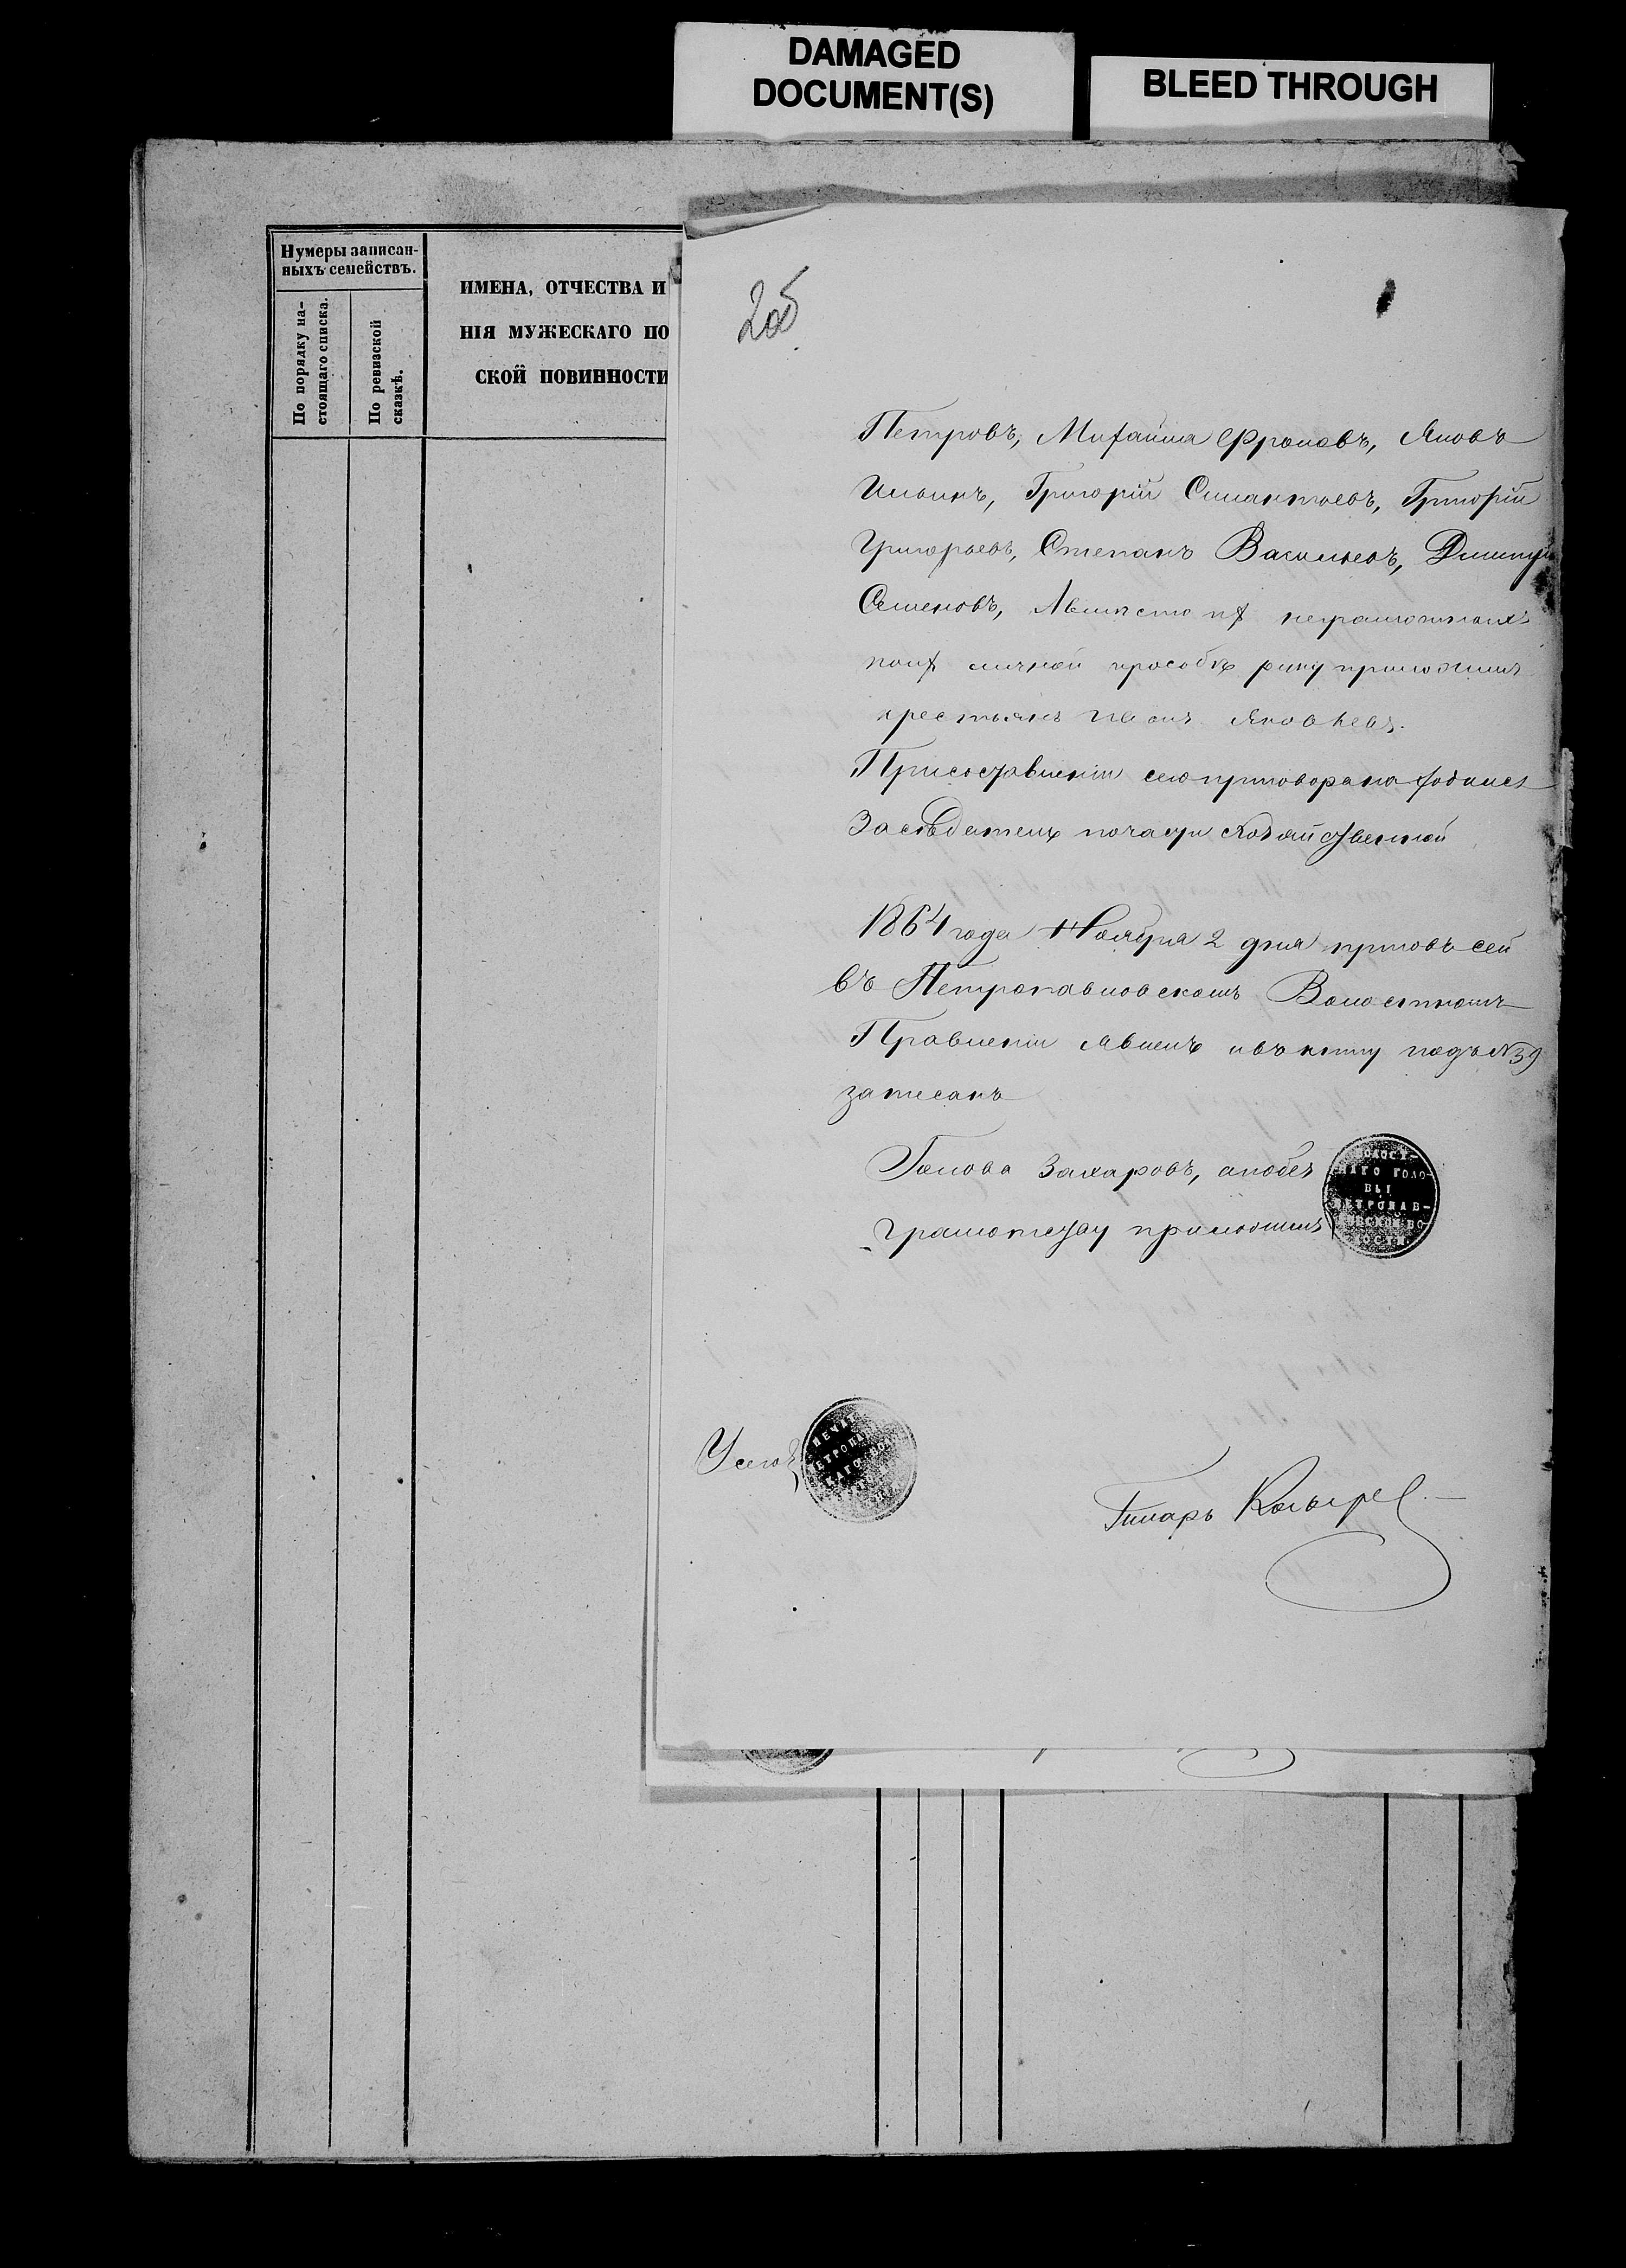 DAMAGED
DOCUMENT(S)
BLEED THROUGH
Нумеры записан-
ныхъ семействъ.
По порядку на-
стоящаго списка.
По ревизской
сказкѣ.
ИМЕНА, ОТЧЕСТВА И
НІЯ МУЖЕСКАГО ПО
СКОЙ ПОВИННОСТИ
Петровъ, Михайла Фроловъ, Яковъ
Ильинъ, Григорій Силантьевъ, Григорій
Григорьевъ, Степанъ Васильевъ, Дмитрій
Семеновъ, А вмѣсто ихъ неграмотныхъ
по ихъ личной прозбѣ руку приложилъ
крестьянъ Яковлевъ.
При составленіи сего приговора находился
Засѣдатель по части хозяйственной
1864 года Ноября 2 дня пригов. сей
въ Петропавловскомъ Волостномъ
Правленіи явленъ и въ книгу подъ № 39
записанъ
Голова Захаровъ, а по без
грамотству приложилъ
ВОЛОСТ-
НАГО ГОЛО-
ВЫ
ПЕТРОПАВ-
ЛОВСКОЙ ВО-
ЛОСТИ.
У сего
ПЕЧАТ
ПЕТРОПА
Писарь